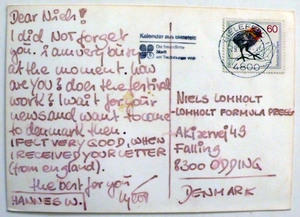 Dear Niels!
I did NOT forget
you. i am very busy
at the moment. how
are you & does the festival
work & I wait for your
news and want to come
to denmark then.
I FELT VERY GOOD, WHEN
I RECEIVED YOUR LETTER
(from england).
the best for you
HANNES W.
Kalender aus Bielefeld
Die freundliche
Stadt
am Teutoburger Wald
60
4800
NIELS LOMHOLT
LOMHOLT FORMULA PRESS
Falling
8300 ODDING
DENMARK